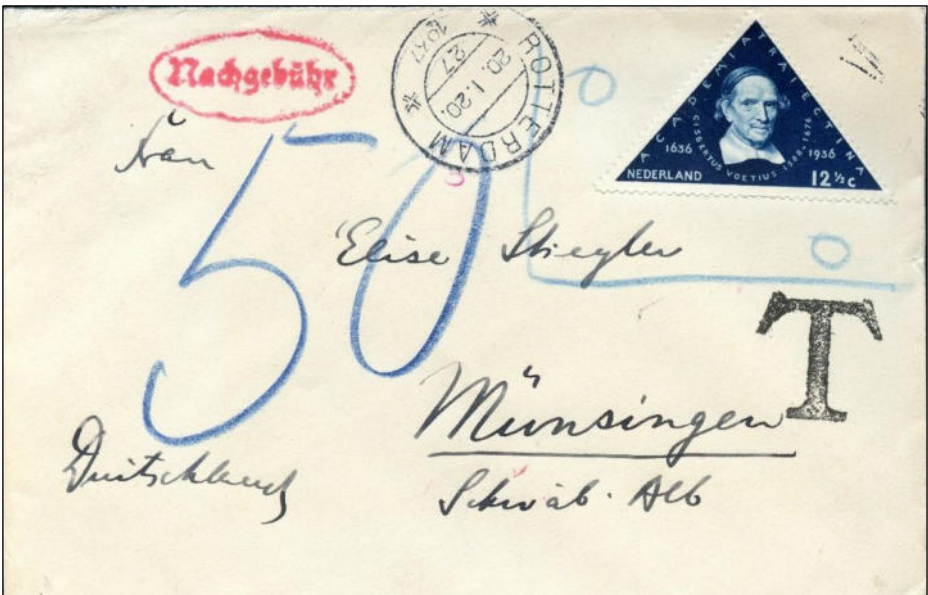 Nachgebühr
ROTTERDAM
20.I.20
27
1937
ACADEMIA TRAIECTINA
GISBERTUS VOETIUS 1588-1676
1636 1936
NEDERLAND 12½c
50
0
0
T
Elise Stiegler
Münsingen
Deutschland
Schwäb. Alb